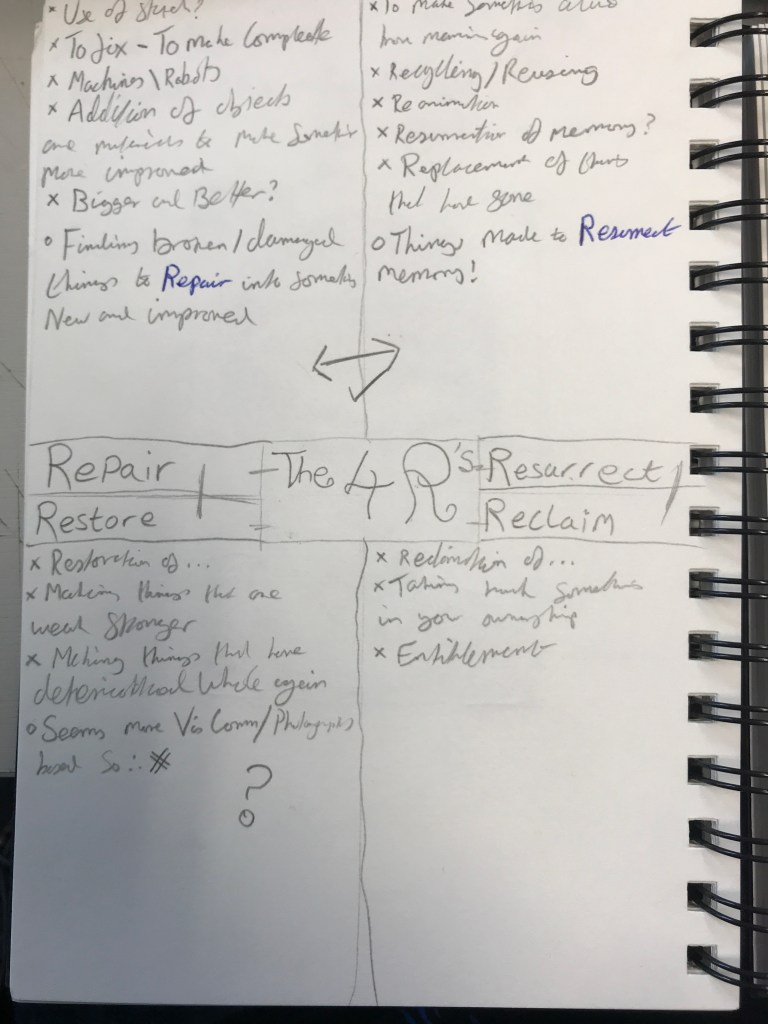 * Use of
x To fix - To make Compleate
x Machines\Robots
x Addition of objects
and materials to make Somethin
More improved
x Bigger and Better?
o Finding broken/damaged
things to Repair into Somethin
New and improved
x To make Somethin alive
from again
x Recycling/Reusing
x Reanimation
x Resurrection of memory?
x Replacement of
that have gone
o Things made to Resurrect
memory!
Repair
Restore
- The 4 R's -
Resurrect
Reclaim
x Restoration of...
x Making things that are
weak Stronger
x Making things that have
whole again
o Seems more Vis Comm/Photography
based So ∴ x
?
x Reclimation of...
x Taking back Somethin
in your ownership
x Entitlement